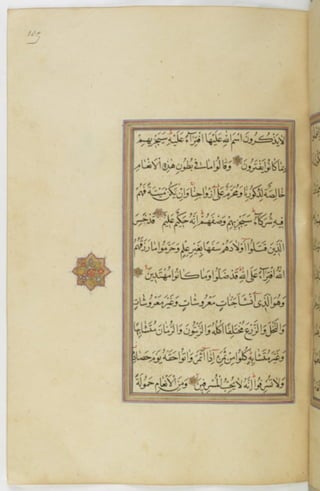 لَا يَذْكُرُونَ اسْمَ اللّٰهِ عَلَيْهَا افْتِرَآءً عَلَيْهِ سَيَجْزِيهِمْ
بِمَا كَانُوا يَفْتَرُونَ وَقَالُوا مَا فِى بُطُونِ هٰذِهِ الْاَنْعَامِ
خَالِصَةٌ لِذُكُورِنَا وَمُحَرَّمٌ عَلٰى اَزْوَاجِنَا وَاِنْ يَكُنْ مَيْتَةً فَهُمْ
فِيهِ شُرَكَآءُ سَيَجْزِيهِمْ وَصْفَهُمْ اِنَّهُ حَكِيمٌ عَلِيمٌ قَدْ خَسِرَ
الَّذِينَ قَتَلُوا اَوْلَادَهُمْ سَفَهًا بِغَيْرِ عِلْمٍ وَحَرَّمُوا مَا رَزَقَهُمُ
اللّٰهُ افْتِرَآءً عَلَى اللّٰهِ قَدْ ضَلُّوا وَمَا كَانُوا مُهْتَدِينَ
وَهُوَ الَّذِى اَنْشَاَ جَنَّاتٍ مَعْرُوشَاتٍ وَغَيْرَ مَعْرُوشَاتٍ
وَالنَّخْلَ وَالزَّرْعَ مُخْتَلِفًا اُكُلُهُ وَالزَّيْتُونَ وَالرُّمَّانَ مُتَشَابِهًا
وَغَيْرَ مُتَشَابِهٍ كُلُوا مِنْ ثَمَرِهِ اِذَا اَثْمَرَ وَاٰتُوا حَقَّهُ يَوْمَ حَصَادِهِ
وَلَا تُسْرِفُوا اِنَّهُ لَا يُحِبُّ الْمُسْرِفِينَ وَمِنَ الْاَنْعَامِ حَمُولَةً